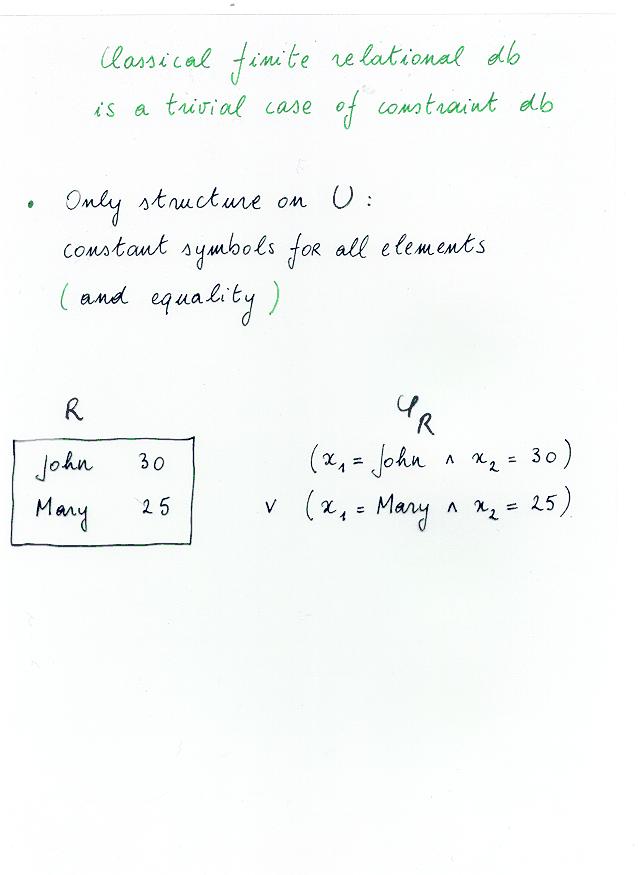 Classical finite relational db
is a trivial case of constraint db
• Only structure on U :
constant symbols for all elements
(and equality)
R
John 30
Mary 25
φ_R
(x₁ = John ∧ x₂ = 30)
∨ (x₁ = Mary ∧ x₂ = 25)